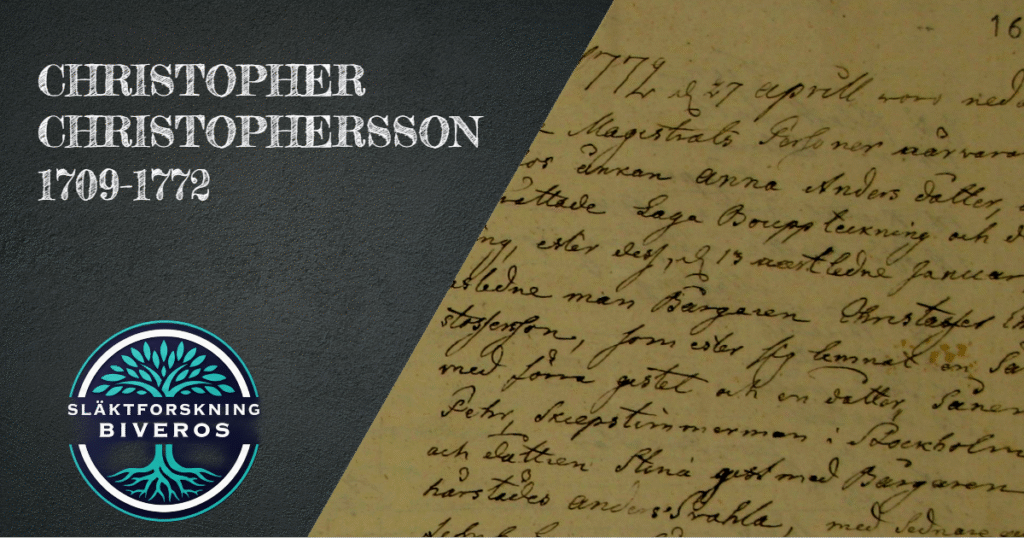 CHRISTOPHER
CHRISTOPHERSSON
1709-1772
SLÄKTFORSKNING
BIVEROS
16
1772 d 27 aprill woro ned
Magistrats Personer närvara
hos änkan anna Anders dotter,
rättade Laga Boupp teckning och d
ing, efter dess, d 13 näst ledne Januar
afledne man Bårgaren Christoffer Ch
stoffersson, som efter sig lemnat en Sån
med förra giftet och en dotter, Sånen
Pehr, Skiepstimmerman i Stockholm
och dottren Stina gift med Bårgaren
härstädes anders Wahla, med sednare